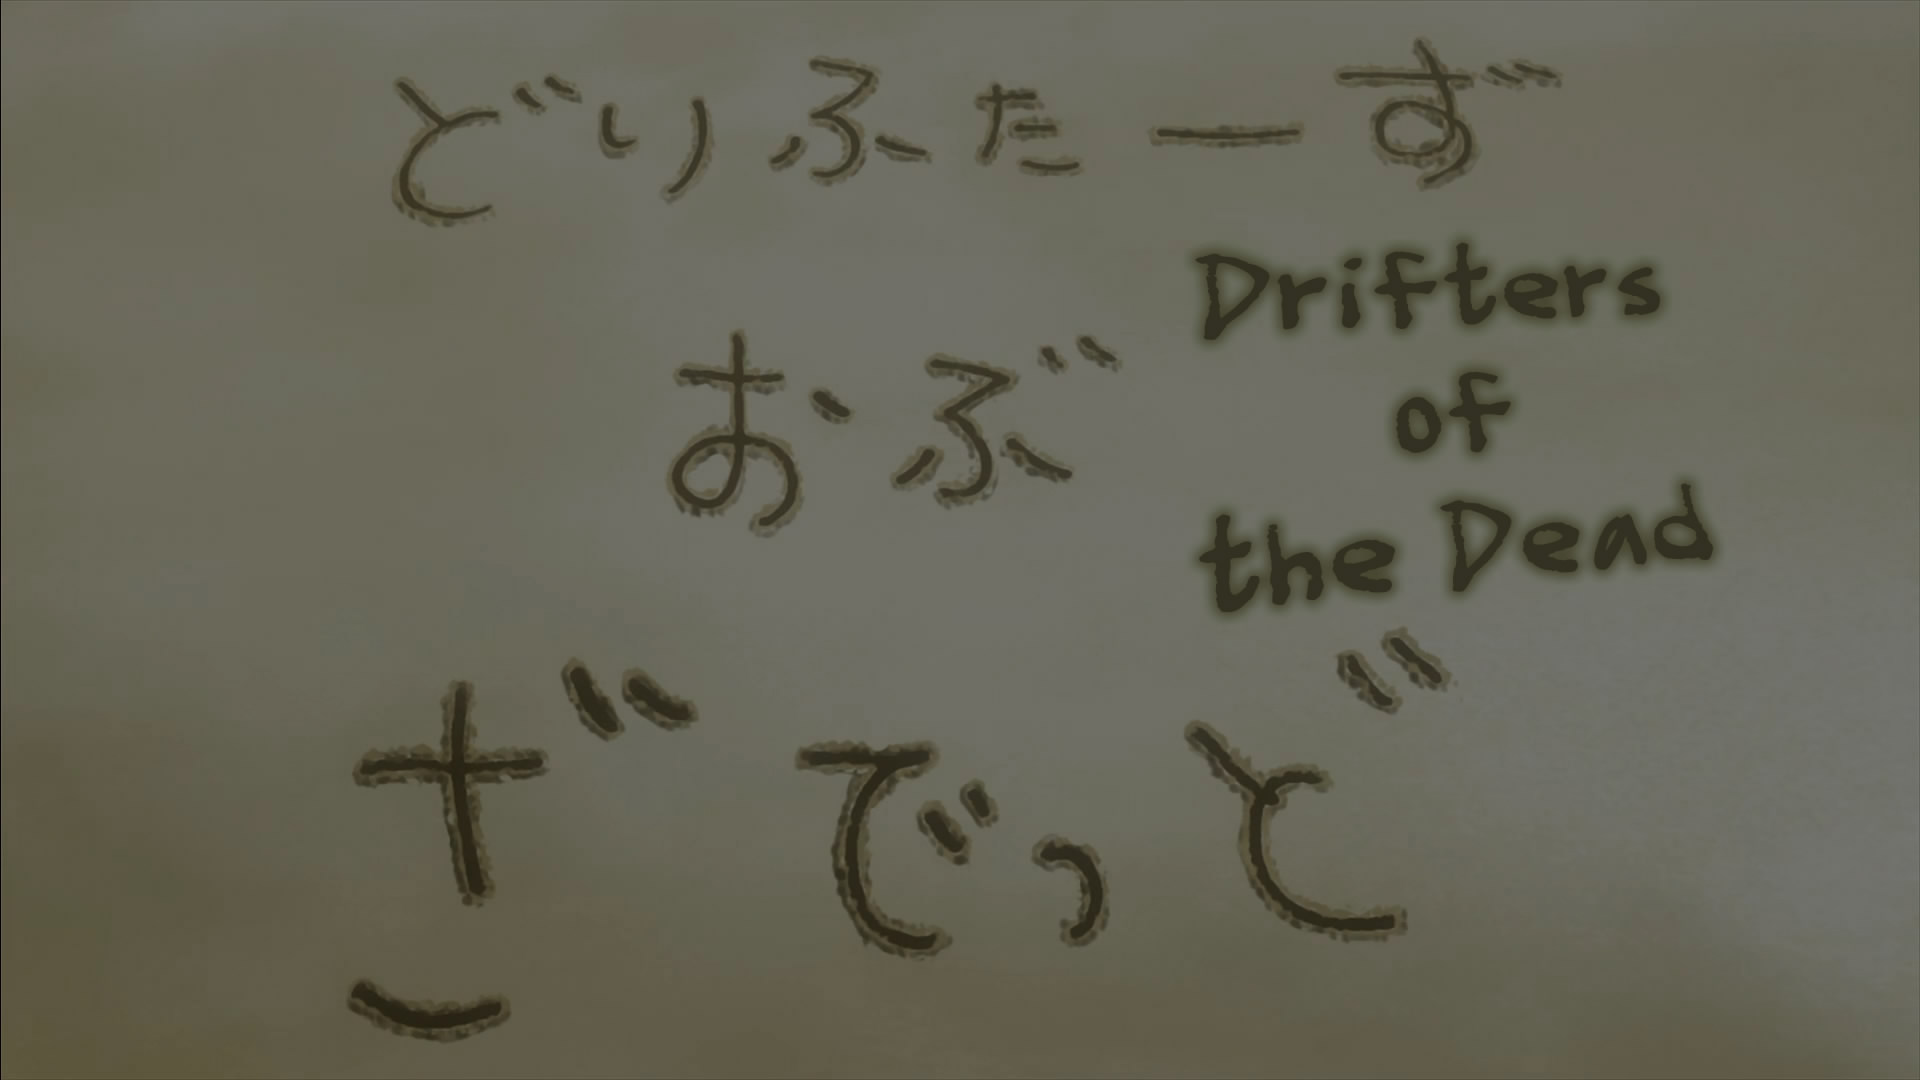 どりふたーず
Drifters
おぶ
of
the Dead
ざでっど